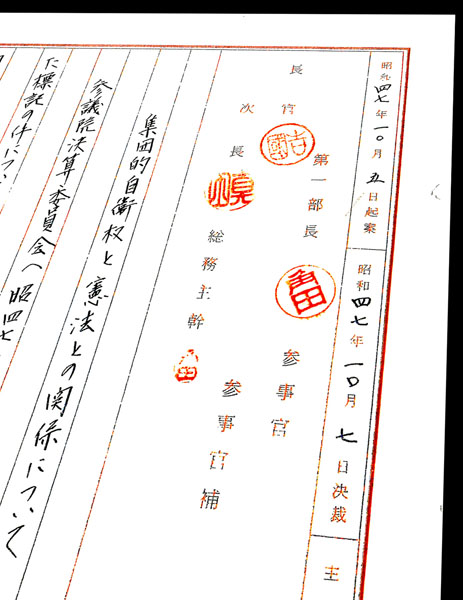 昭和四七年一〇月五日起案 昭和四七年一〇月七日決裁 主
長官 吉國 第一部長 角田 参事官
次長 総務主幹 参事官補
集団的自衛权と憲法との関係について
参議院決算委員会へ昭四七
た標記の件につい